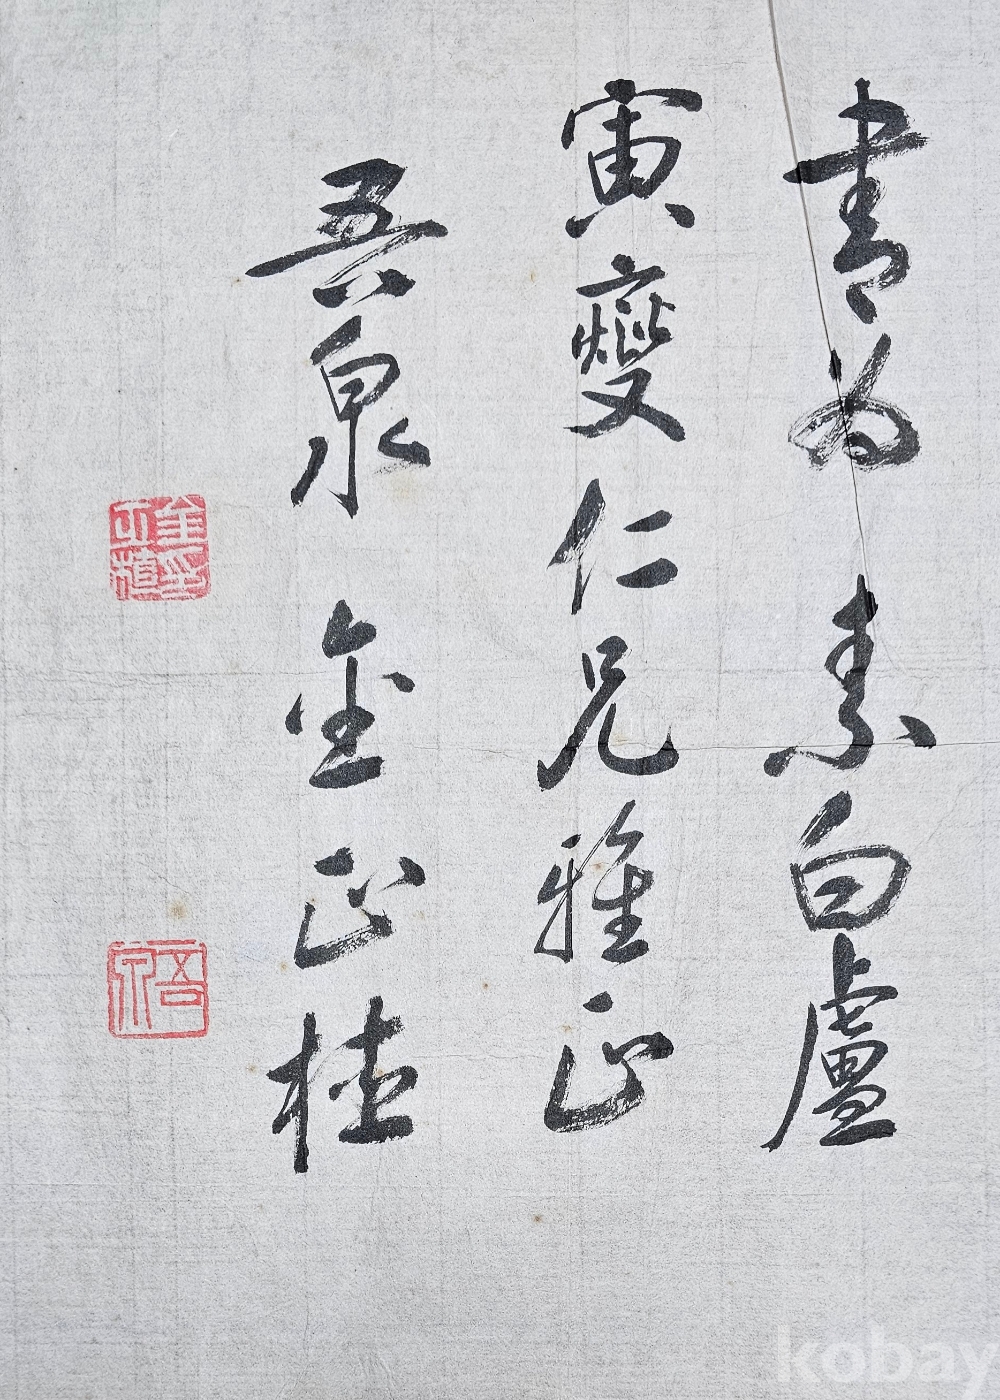 書為素白盧
寅燮仁兄雅正
吾泉 金正植
金印正植
吾泉
kobay